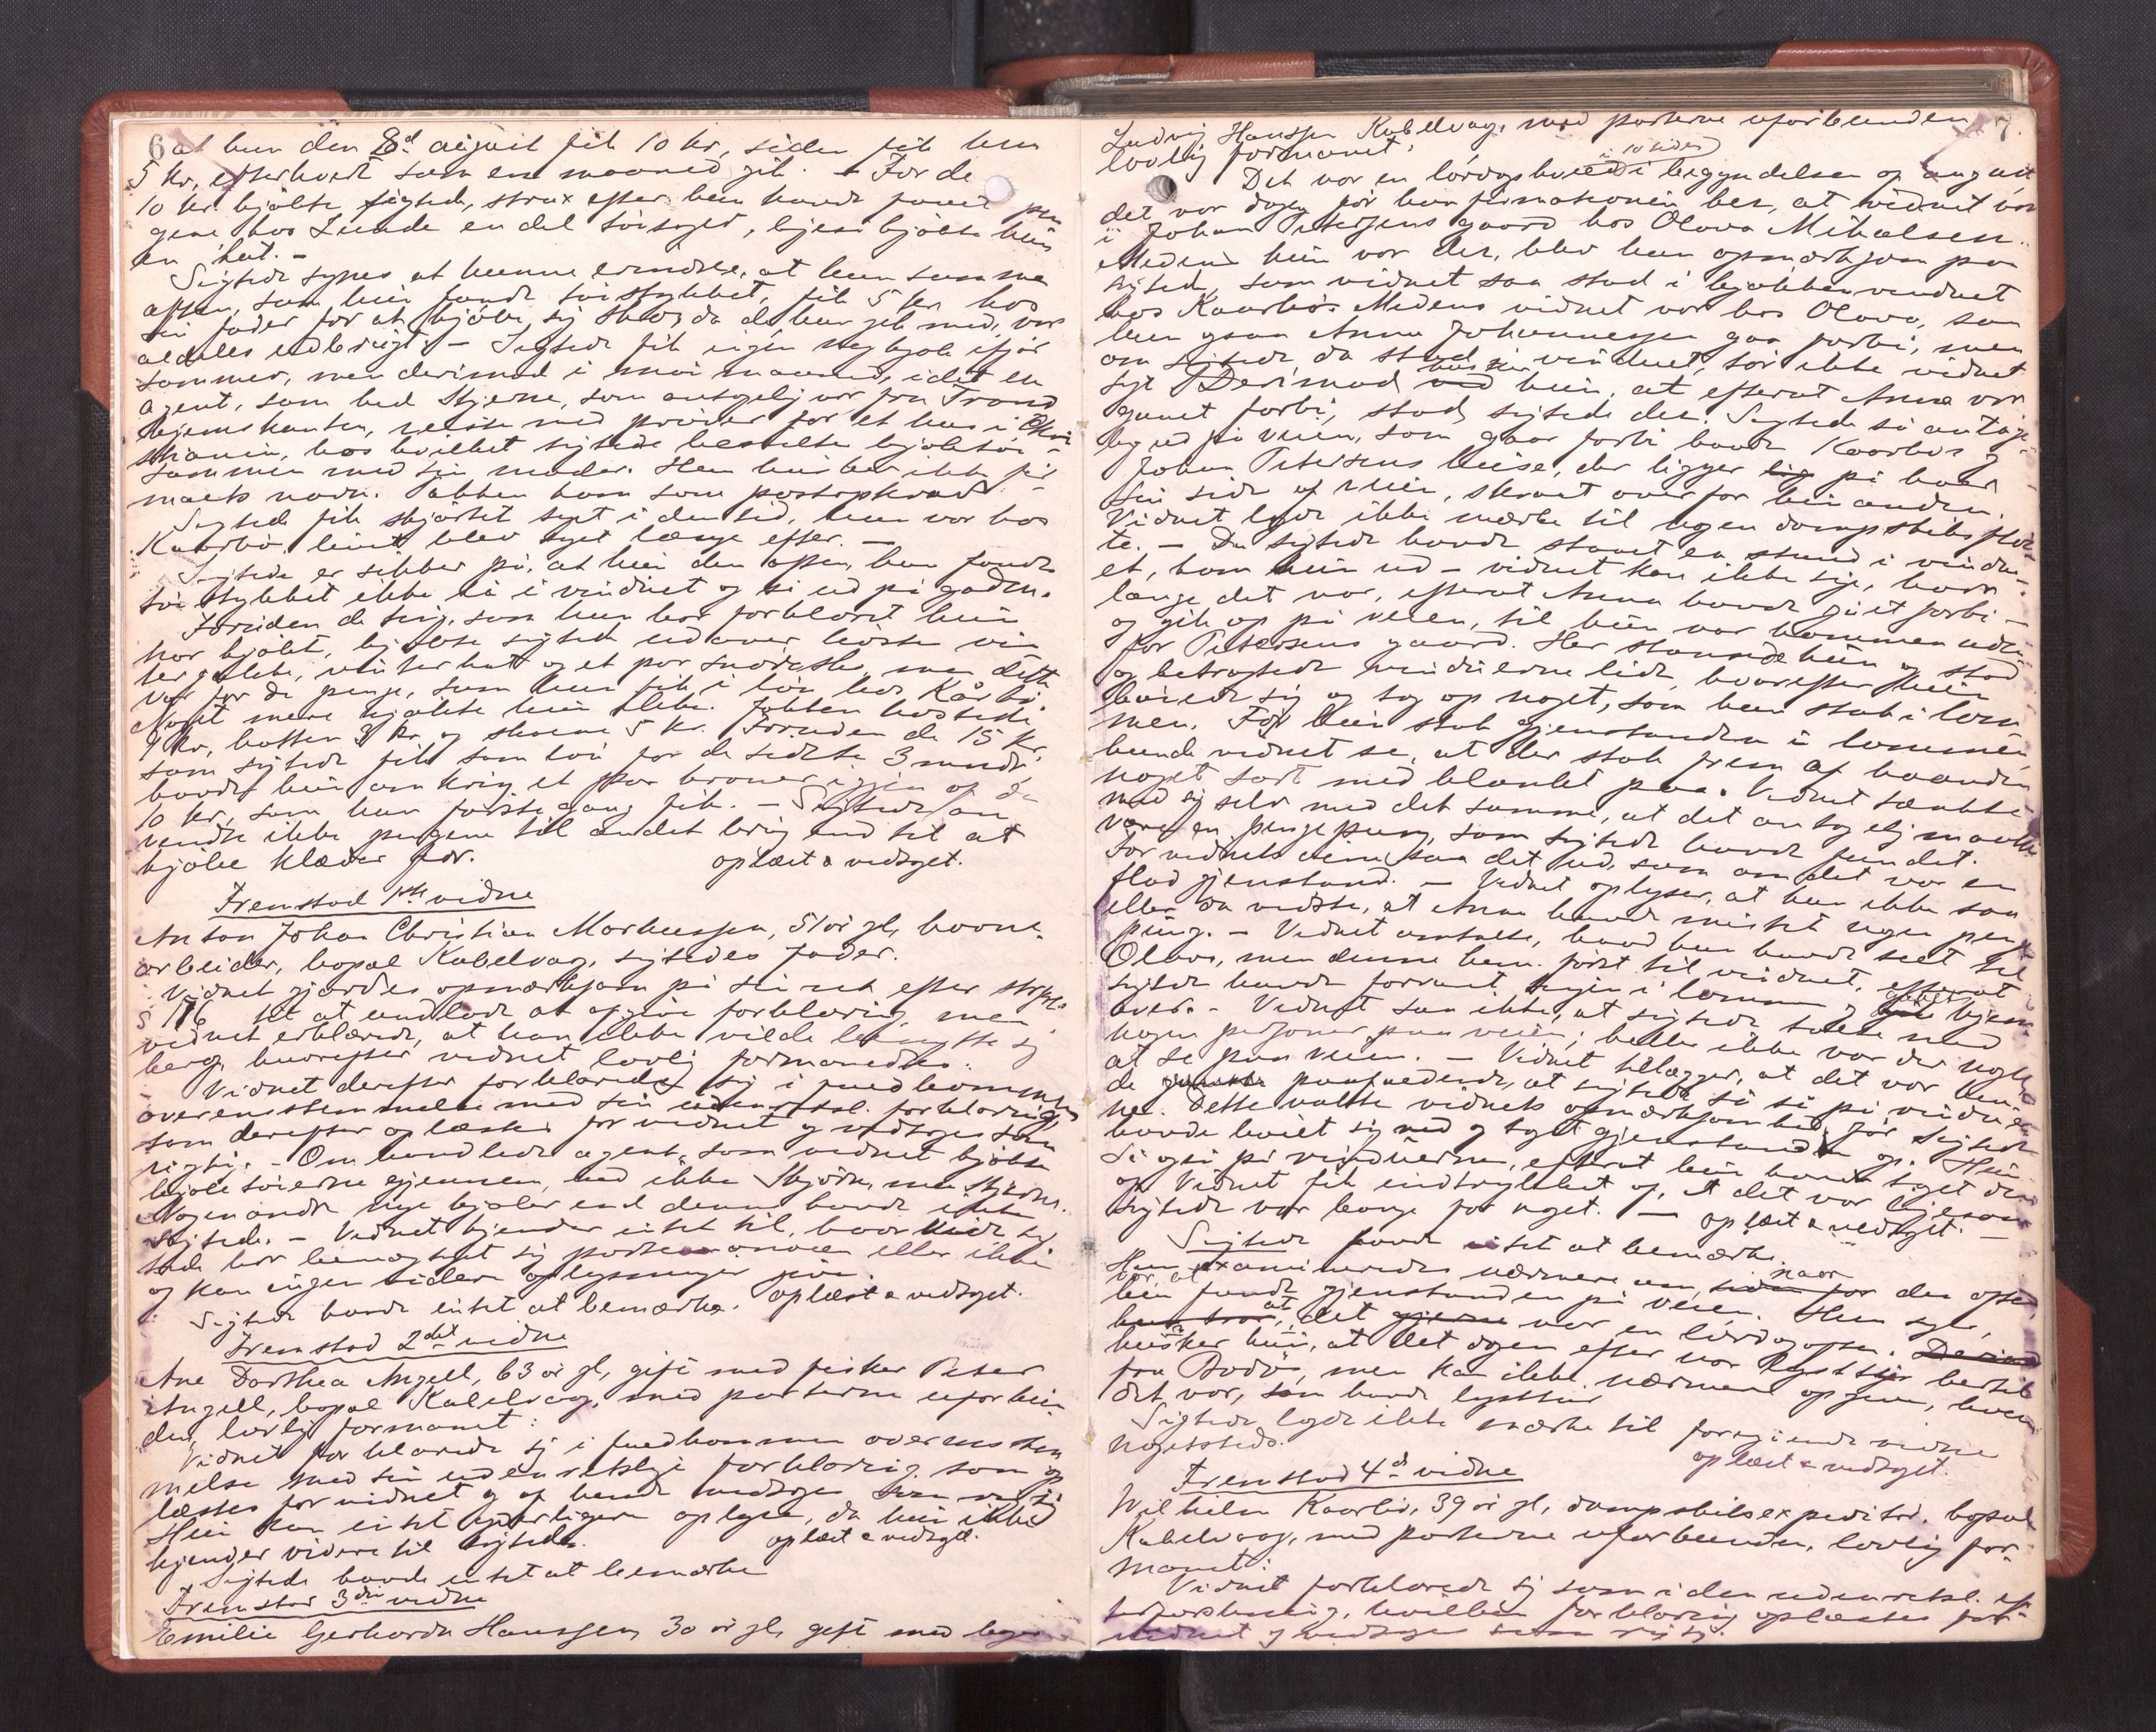 6 at hun den 8d august fik 10 kr, siden fik hun
5 kr, efterhvert som en maaned gik. - For de
10 kr. kjøbte sigtede, strax efter hun havde faaet pen
gene hos Lunde en del tøisager, ligesaa kjøbte hun
en hat. -
Sigtede synes at kunne erindre, at hun samme
aften, som hun fandt tøistykket, fik 5 kr hos
sin fader for at kjøbe sig sko, da de hun gik med, var
aldeles udbrugt. - Sigtede fik ingen ny kjole ifjor
sommer, men derimod i mai maaned, idet en
agent, som hed Stjerne, som antagelig var fra Trond
hjemskanten, reiste med prøver for et hus i Chri
stiania, hos hvilket sigtede bestilte kjoletøi -
sammen med sin moder. Hun husker ikke fir
maets navn. Pakken kom som postopkrav.
Sigtede fik skjørtet syet i den tid, hun var hos
Kaarbø, livet blev syet længe efter. -
Sigtede er sikker på, at hun den aften, hun fandt
tøistykket ikke lå i vinduet og så ud på gaden.
Foruden de ting, som hun har forklaret hun
har kjøbt, kjøbte sigtede udover høsten vin
terjakke, vinterhat og et par snøresko, men dette
var for de penge, som hun fik i løn hos Kårbø.
Noget mere kjøbte hun ikke. Jakken kostede
9 kr, hatten 3 kr og skoene 5 kr. Foruden de 15 kr,
som sigtede fik som løn for de sidste 3 mndr.
havde hun omkring et par kroner igjen af de
10 kr, som hun første gang fik. - Sigtede an
vendte ikke pengene til andet brug end til at
kjøbe klæder for. oplæst & vedtaget.
Fremstod 1ste vidne
Anton Johan Christian Markussen, 51 år gl, havne-
arbeider, bopæl Kabelvaag, sigtedes fader.
Vidnet gjordes opmærksom på sin ret efter strprl.
§ 176 til at undlade at afgive forklaring, men
vidnet erklærede, at han ikke vilde benytte sig
heraf, hvorefter vidnet lovlig formanedes.
Vidnet derefter forklarede sig i fuldkommen
overensstemmelse med sin udenretsl. forklaring,
som derefter oplæstes for vidnet og vedtoges som
rigtig. - Omhandlede agent, som vidnet kjøbte
kjoletøierne gjennem, hed ikke Skjørn, men Stjerne.
Nogen andre nye kjoler end denne havde ikke
sigtede. - Vidnet kjender intet til, hvorvidt sig
tede har bemægtiget sig portemonnæen eller ikke
og kan ingen videre oplysninger give.
Sigtede havde intet at bemærke. Oplæst & vedtaget.
Fremstod 2det vidne
Ane Dorthea Angell, 63 år gl, gift med fisker Peter
Angell, bopæl Kabelvaag, med parterne uforbun
den, lovlig formanet:
Vidnet forklarede sig i fuldkommen overensstem
melse med sin udenretslige forklaring, som op
læstes for vidnet og af hende vedtoges som rigtig
Hun kan intet yderligere oplyse, da hun ikke
kjender videre til sigtede. oplæst & vedtaget.
Sigtede havde intet at bemærke
Fremstod 3die vidne
Emilie Gerharda Hanssen, 30 år gl, gift med
Ludvig Hanssen Kabelvag, med parterne uforbunden, 7.
lovlig formanet:
kl. 10 tiden
Det var en lørdagskveld i begyndelsen af august,
det var dagen før konfirmationen her, at vidnet var
i Johan Petersens gaard hos Olava Mikalsen.
Medens hun var der, blev hun opmærksom paa
sigtede, som vidnet saa stod i kjøkkenvinduet
hos Kaarbø. Medens vidnet var hos Olava, saa
hun ogsaa Anna Johannessen gaa forbi, men
om sigtede da stod i vinduet, tør ikke vidnet
sige. Derimod husker hun, at efterat Anna var
gaaet forbi, stod sigtede der. Sigtede så antage-
lig ud på veien, som gaar forbi baade Kaarbøs og
Johan Petersens huse, der ligger lig på hver
sin side af veien, skraat overfor hinanden.
Vidnet lagde ikke mærke til nogen dampskibsfløi
te. - Da sigtede havde staaet en stund i vindu-
et, kom hun ud - vidnet kan ikke sige, hvor
længe det var, efterat Anna havde gået forbi -
og gik op på veien, til hun var kommen uden
for Petersens gaard. Her standsede hun og stod
og betragtede vinduerne lidt, hvorefter hun
bøiede sig og tog op noget, som hun stak i lom
men. Før hun stak gjenstanden i lommen
kunde vidnet se, at der stak frem af haanden
noget sort med blankt paa. Vidnet tænkte
med sig selv med det samme, at det antagelig maatte
være en pengepung, som sigtede havde fundet.
For vidnets øine saa det ud, som om det var en
flad gjenstand. - Vidnet oplyser, at hun ikke saa
eller da vidste, at Anna havde mistet nogen penge
pung. - Vidnet omtalte, hvad hun havde seet til
Olava, men denne kom først til vinduet, efterat
sigtede havde forvaret tingen i lommen og gaaet hjem
over. - Vidnet saa ikke, at sigtede talte med
nogen personer paa veien; heller ikke var der nogen
at se paa veien. - Vidnet tilægger, at det var hen
de paafaldende, at sigtede så så på vinduer
ne. Dette vakte vidnets opmærksomhed, før sigtede
havde bøiet sig ned og taget gjenstanden op. Hun
så også på vinduerne, efterat hun havde taget den
op. Vidnet fik indtrykket af, at det var ligesom
sigtede var bange for noget. - oplæst & vedtaget. -
Sigtede havde intet at bemærke.
Hun examineredes nærmere om, naar
hun fandt gjenstanden på veien. Hun siger,
at det var en lørdagaften.
husker hun, at det dagen efter var lysttur
fra Bodø, men kan ikke nærmere opgive, hvem
det var, som havde lysttur
Sigtede lagde ikke mærke til foregående vidne
nogetsteds. oplæst & vedtaget.
Fremstod 4d vidne
Wilhelm Kaarbø, 39 år gl, dampskibsexpeditør, bopæl
Kabelvaag, med parterne uforbunden, lovlig for-
manet:
Vidnet forklarede sig som i den udenretsl. ef
terforskning, hvilken forklaring oplæstes for
vidnet og vedtoges som rigtig.